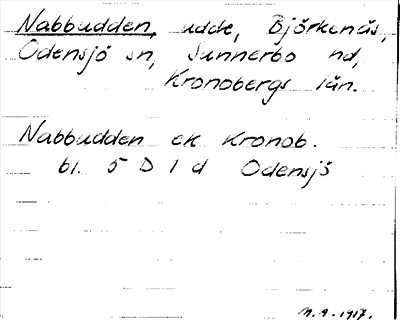 Nabbudden, udde, Björkenäs,
Odensjö sn, Sunnerbo hd,
Kronobergs län.
Nabbudden ek Kronob.
bl. 5 D 1 d Odensjö
1917.